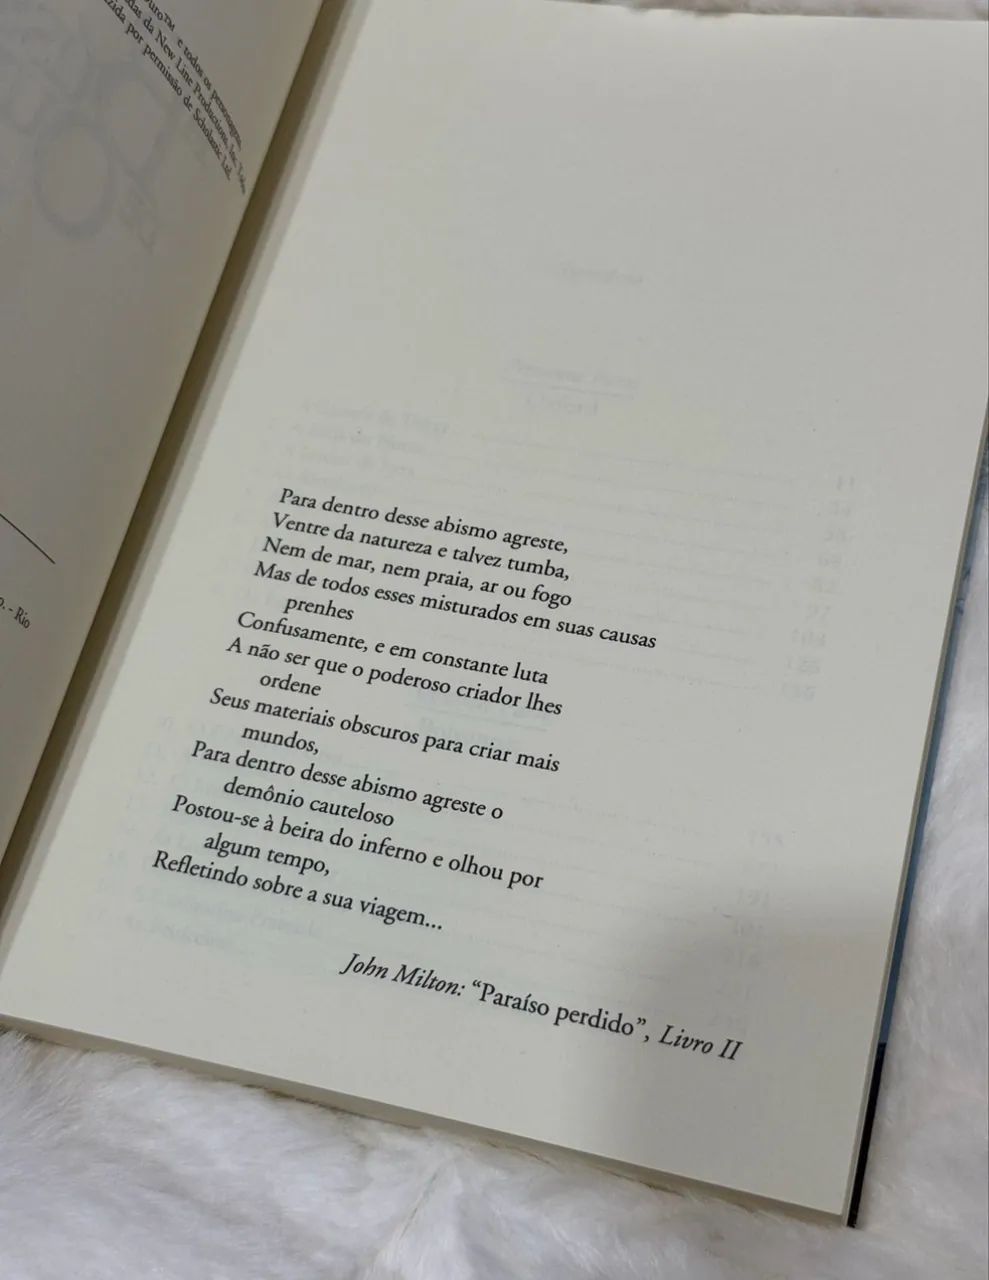 uro™ e todos os personagens,
das da New Line Productions, Inc. Todos
zida por permissão de Scholastic Ltd.
o. - Rio
Para dentro desse abismo agreste,
Ventre da natureza e talvez tumba,
Nem de mar, nem praia, ar ou fogo
Mas de todos esses misturados em suas causas
prenhes
Confusamente, e em constante luta
A não ser que o poderoso criador lhes
ordene
Seus materiais obscuros para criar mais
mundos,
Para dentro desse abismo agreste o
demônio cauteloso
Postou-se à beira do inferno e olhou por
algum tempo,
Refletindo sobre a sua viagem...
John Milton: “Paraíso perdido”, Livro II